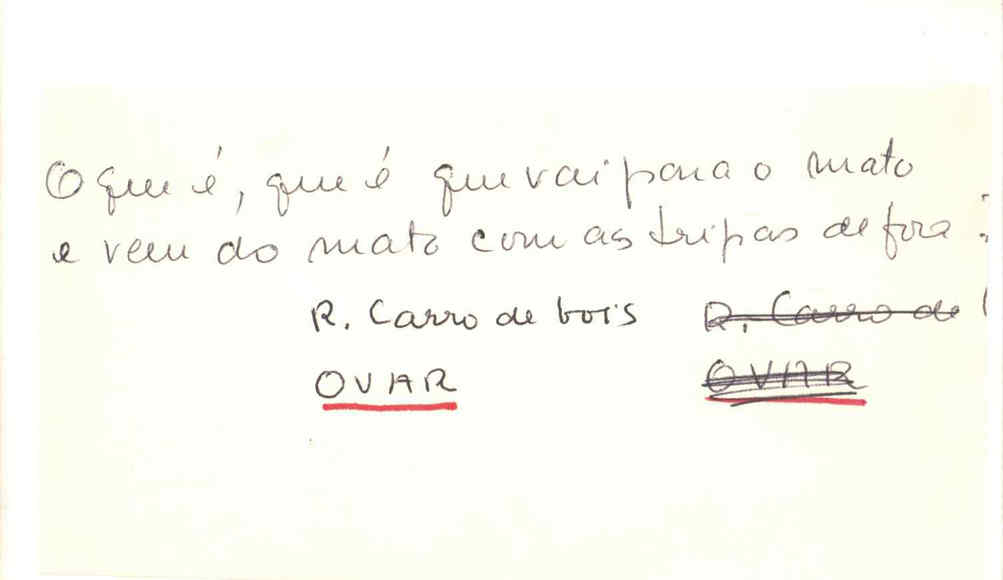 O que é, que é que vai para o mato
e vem do mato com as tripas de fora?
R. Carro de bois R. Carro de
OVAR OVAR